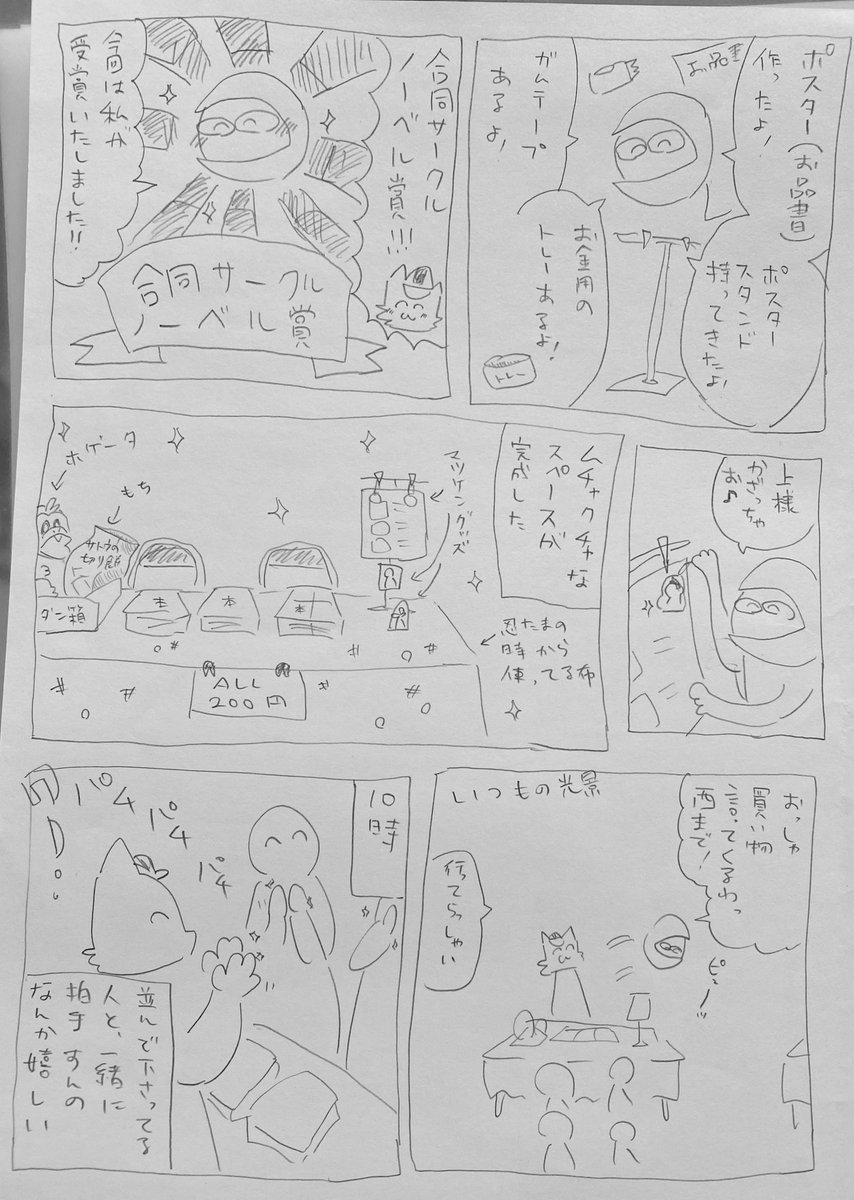 ポスター(お品書)
作ったよ!
お品書
ポスター
スタンド
持ってきたよ!
ガムテープ
あるよ!
お金用の
トレーあるよ!
トレー
合同サークル
ノーベル賞!!!
合同サークル
ノーベル賞
今回は私が
受賞いたしました!!
上様
かざっちゃ
お♪
ムチャクチャな
スペースが
完成した
忍たまの
時から
使ってる布
マツケングッズ
ホゲータ
もち
サトウの
切り餅
ダン箱
本
本
本
ALL
200円
おっしゃ
買い物
言ってくるわっ
西まで!
ピューッ
いつもの光景
行てらっしゃい
10時
パチ
パチ
パチ
並んで下さってる
人と、一緒に
拍手すんの
なんか嬉しい